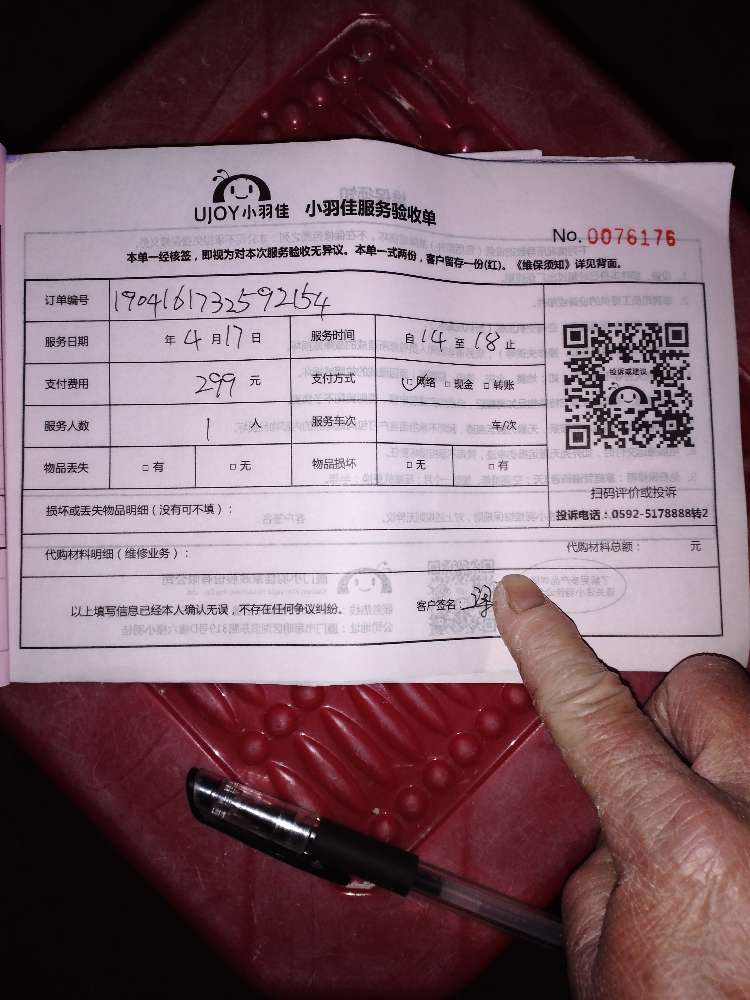 UJOY小羽佳 小羽佳服务验收单
No. 0076176
本单一经核签，即视为对本次服务验收无异议。本单一式两份，客户留存一份(红)。《维保须知》详见背面。
订单编号 1904161732592154
服务日期 年 4 月 17 日 服务时间 自 14 至 18 止
支付费用 299 元 支付方式 网络 □ 现金 □ 转账
服务人数 1 人 服务车次 车/次
物品丢失 □ 有 □ 无 物品损坏 □ 无 □ 有
投诉或建议
扫码评价或投诉
投诉电话：0592-5178888转2
损坏或丢失物品明细（没有可不填）：
代购材料明细（维修业务）： 代购材料总额： 元
以上填写信息已经本人确认无误，不存在任何争议纠纷。 客户签名：